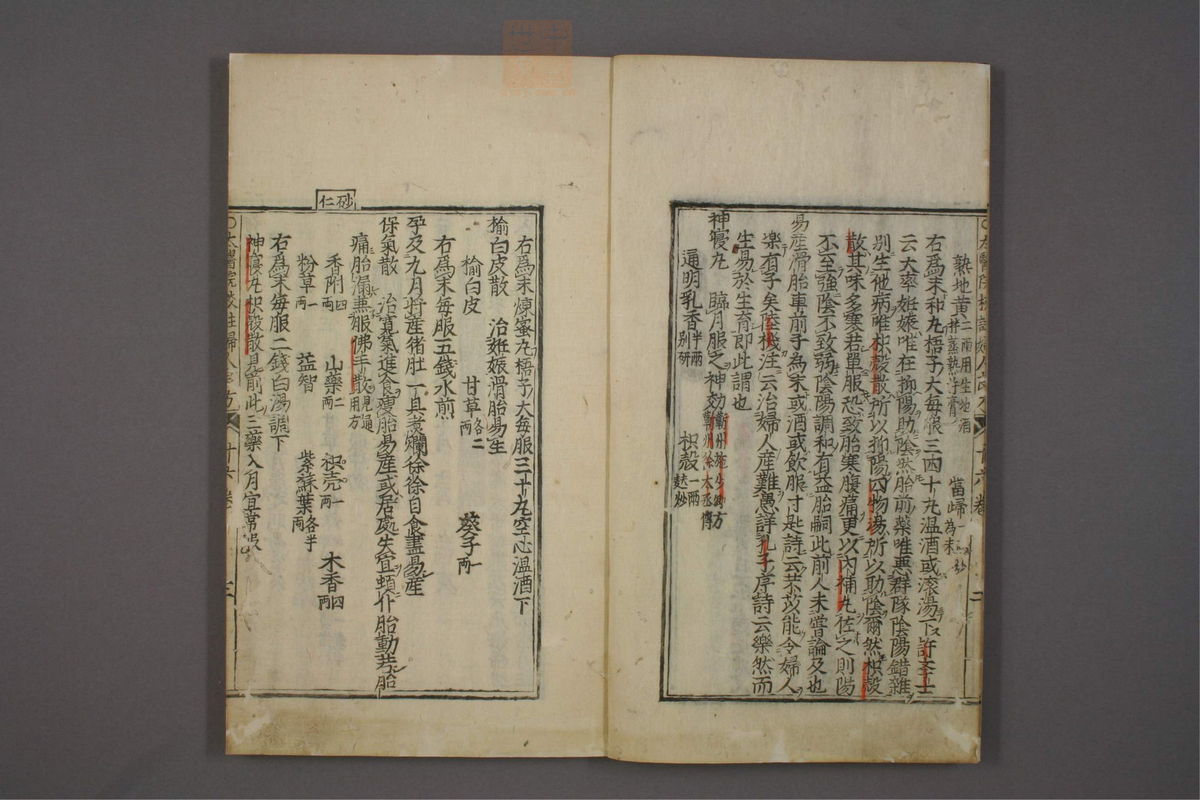 熟地黃二兩用生地酒
拌蒸熟焙膏 當歸一
為末
右為末和丸梧子大每服三四十丸溫酒或滾湯下許學士
云大率姙娠唯在抑陽助陰然胎前藥唯惡群隊陰陽錯雜
別生他病唯枳殼散所以抑陽四物湯所以助陰爾然枳殼
散其味多寒若單服恐致胎寒腹痛更以內補丸佐之則陽
不至強陰不致弱陰陽調和有益胎嗣此前人未嘗論及也
易產滑胎車前子為末或酒或飲服寸匙詩云芣苡能令婦人
樂有子矣陸機注云治婦人產難愚詳孔子序詩云樂然而
生易於生育即此謂也
神寢丸 臨月服之神効蘄州施少卿方
蘄州徐太丞傳
通明乳香半兩別研 枳殼一兩麩炒
右為末煉蜜丸梧子大每服三十丸空心溫酒下
榆白皮散 治姙娠滑胎易生
榆白皮 甘草各二兩 葵子一兩
右為末每服五錢水煎
孕及九月將產猪肚一具煮爛徐徐自食盡易產
保氣散 治寬氣進食瘦胎易產或居處失宜頓仆胎動其胎
痛胎漏兼服佛手散見通用方
砂仁
香附四兩 山藥二兩 枳壳一兩 木香四兩
粉草一兩 益智 紫蘇葉各半兩
右為末每服二錢白湯調下
神寢丸枳殼散見前此三藥入月宜常服
○太醫院校註婦人良方 十六卷 三